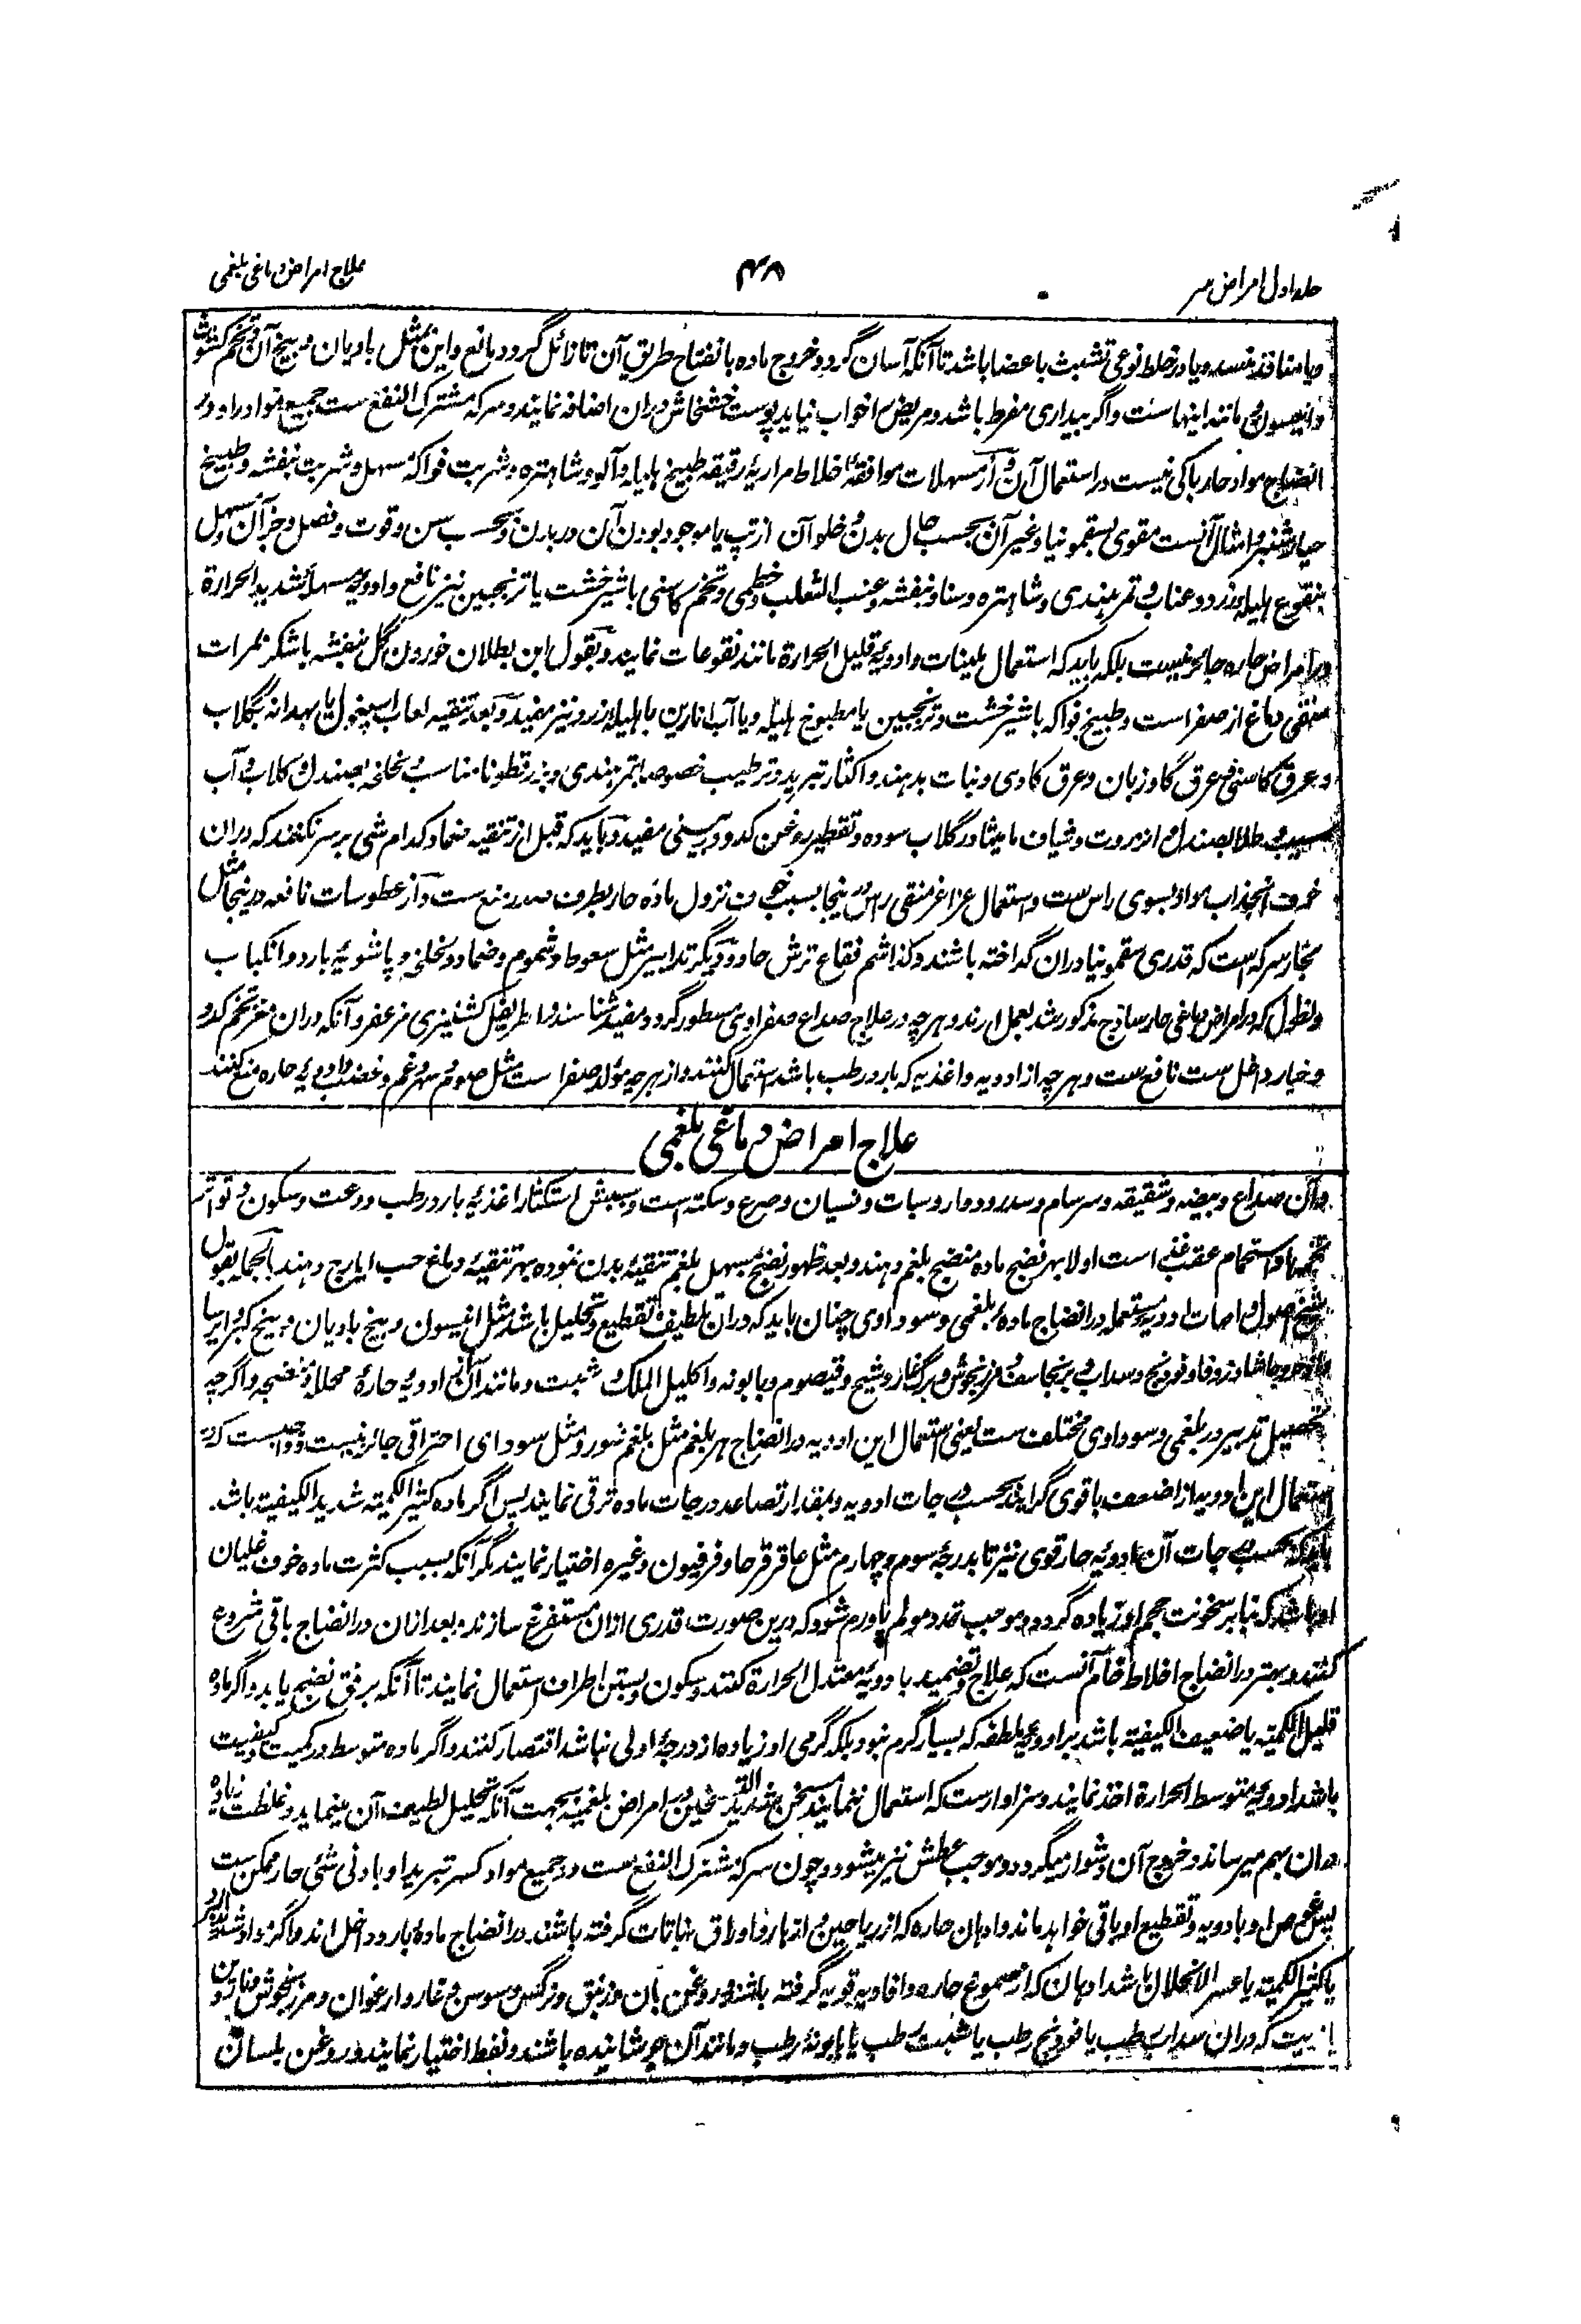 جلد اول امراض سر
۴۸
علاج امراض دماغی بلغمی
و یا منافذ منسد و یا در خلط نوعی تشبث باعضا باشد تا آنکه آسان گردد خروج ماده بانفتاح طریق آن تا زائل گردد مانع و این مثل بادیان و بیخ آن و تخم کشوث
و انیسون و مانند اینهاست و اگر بیداری مفرط باشد و مریض را خواب نیاید پوست خشخاش دران اضافه نمایند و سرکه مشترک النفع ست جمیع مواد را و در
انضاج مواد حار باکی نیست در استعمال آن و از مسهلات موافقهٔ اخلاط مراریهٔ رقیقه طبیخ هلیله و آلو و شاهتره و شربت فواکه مسهل و شربت بنفشه و طبیخ
خیارشنبر و امثال آنست مقوی بسقمونیا و غیر آن بحسب حال بدن و خلو آن از تپ یا موجود بودن آن در بدن و بحسب سن و قوت و فصل و جز آن و مسهل
بنقوع هلیلهٔ زرد و عناب و تمر هندی و شاهتره و سنا و بنفشه و عنب الثعلب و خطمی و تخم کاسنی با شیرخشت یا ترنجبین نیز نافع و ادویهٔ مسهلهٔ شدید الحرارة
در امراض حاره جائز نیست بلکه باید که استعمال ملینات و ادویهٔ قلیل الحرارة مانند نقوعات نمایند و بقول ابن بطلان خوردن گل بنفشه با شکر بمرات
منقی دماغ از صفراست و طبیخ فواکه با شیرخشت و ترنجبین یا مطبوخ هلیله و یا آب انارین با هلیلهٔ زرد نیز مفید و بعد تنقیه لعاب اسپغول یا بهدانه بگلاب
و عرق کاسنی و عرق گاوزبان و عرق کادی و نبات بدهند و اکثار تبرید و ترطیب خصوصا بتمر هندی و بزرقطونا مناسب و لخلخه بصندل و گلاب و آب
سیب و طلا بصندل و انزروت و شیاف مامیثا در گلاب سوده و تقطیر روغن کدو در بینی مفید و باید که قبل از تنقیه ضماد کدام شی بر سر نکنند که دران
خوف انجذاب مواد بسوی راس ست و استعمال غراغر منقی راس درینجا بسبب خوف نزول ماده حار بطرف صدر منع ست و از عطوسات نافعه درینجا مثل
بخار سرکه است که قدری سقمونیا دران گداخته باشند و کذا شم فقاع ترش حاد و دیگر تدابیر مثل سعوط و شموم و ضماد و لخلخه و پاشویهٔ بارد و انکباب
و نطول که در امراض دماغی حار ساذج مذکور شد بعمل آرند و هرچه در علاج صداع صفراوی مسطور گردد مفید شناسند و اطریفل کشنیزی مزعفر و آنکه دران مغز تخم کدو
و خیار داخل ست نافع ست و هرچه از ادویه و اغذیه که بارد رطب باشد استعمال کنند و از هرچه مولد صفراست مثل صوم و سهر و غم و غضب و ادویهٔ حاره منع کنند
علاج امراض دماغی بلغمی
و آن صداع و بیضه و شقیقه و سرسام و سدر و دوار و سبات و نسیان و صرع و سکته است و سببش استکثار اغذیهٔ بارد رطب و دعت و سکون و تواتر
تخمها و استحمام عقب غذا است اولا بهر نضج ماده منضج بلغم دهند و بعد ظهور نضج مسهل بلغم تنقیهٔ بدن نموده بهر تنقیهٔ دماغ حب ایارج دهند بالجمله بقول
شیخ اصول و امهات ادویهٔ مستعمله در انضاج مادهٔ بلغمی و سوداوی چنان باید که دران تلطیف و تقطیع و تحلیل باشد مثل انیسون و بیخ بادیان و بیخ کبر و ایرسا
و حاشا و زوفا و فودنج و سداب و برنجاسف و مرزنجوش و برگ غار و شیح و قیصوم و بابونه و اکلیل الملک و شبت و مانند آن از ادویهٔ حارهٔ محلله منضجه و اگرچه
تحصیل تدبیر در بلغمی و سوداوی مختلف ست یعنی استعمال این ادویه در انضاج هر بلغم مثل بلغم شور و مثل سودای احتراقی جائز نیست و واجب ست که در
استعمال این ادویه از اضعف باقوی گرایند بحسب درجات ادویه و بمقدار تصاعد درجات ماده ترقی نمایند پس اگر ماده کثیر الکمیة شدید الکیفیة باشد
باید که بحسب درجات آن ادویهٔ حار قوی نیز تا بدرجهٔ سوم و چهارم مثل عاقرقرحا و فرفیون و غیره اختیار نمایند مگر آنکه بسبب کثرت ماده خوف غلیان
او باشد که بنا بر سخونت حجم او زیاده گردد و موجب تمدد مولم یا ورم شود که درین صورت قدری ازان مستفرغ سازند و بعد ازان در انضاج باقی شروع
کنند و بهتر در انضاج اخلاط خام آنست که علاج و تضمید بادویهٔ معتدل الحرارة کنند و سکون و بستن اطراف استعمال نمایند تا آنکه برفق نضج یابد و اگر ماده
قلیل الکمیة یا ضعیف الکیفیة باشد بر ادویهٔ ملطفه که بسیار گرم نبود بلکه گرمی او زیاده از درجهٔ اولی نباشد اقتصار کنند و اگر ماده متوسط در کمیت و کیفیت
باشد ادویهٔ متوسط الحرارة اخذ نمایند و سزاوارست که استعمال ننمایند مسخن شدید التسخین در امراض بلغمیه بجهت آنکه تحلیل لطیف آن مینماید و غلظت زیاده
دران بهم میرساند و خروج آن دشوار میگردد و موجب عطش نیز میشود و چون سرکه مشترک النفع ست در جمیع مواد کسر تبرید او بادنی شئ حار ممکن ست
پس غوص او بادویه و تقطیع او باقی خواهد ماند و ادهان حاره که از ریاحین و ازهار و اوراق نباتات گرفته باشند در انضاج مادهٔ بارد داخل اند و اگر مواد شدید البرد
یا کثیر الکمیة یا عسر الانحلال باشد ادهان که از صموغ حاره و افاویه قویه گرفته باشند و روغن بان و زنبق و نرگس و سوسن و غار و ارغوان و مرزنجوش و ناردین
از زیت که دران سداب رطب یا فودنج رطب یا شبت رطب یا بابونهٔ رطب و مانند آن جوشانیده باشند و نفط اختیار نمایند و روغن بلسان